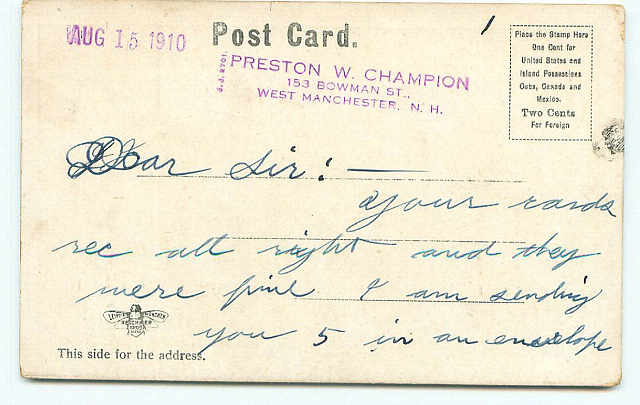 AUG 15 1910
Post Card.
PRESTON W. CHAMPION
153 BOWMAN ST.,
WEST MANCHESTER, N. H.
Place the Stamp Here
One Cent for
United States and
Island Possessions
Cuba, Canada and
Mexico.
Two Cents
For Foreign
Dear Sir: —
Your cards
rec all right and they
were fine I am sending
you 5 in an envelope
This side for the address.